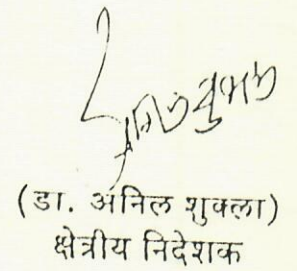 (डा. अनिल शुक्ला)
क्षेत्रीय निदेशक